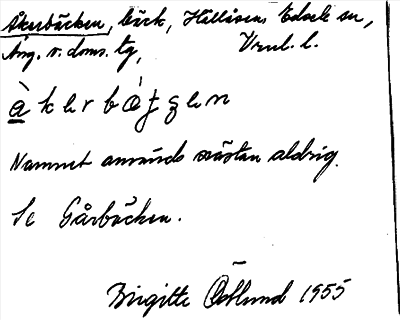 Åkerbäcken, bäck, Hillisens Edsele sn,
Ång. v. doms. tg, Vrul. l.
à k e r b ä̀ ʈ ʂ e n
Namnet används nästan aldrig.
Se Gårbäcken.
Birgitte Östlund 1955